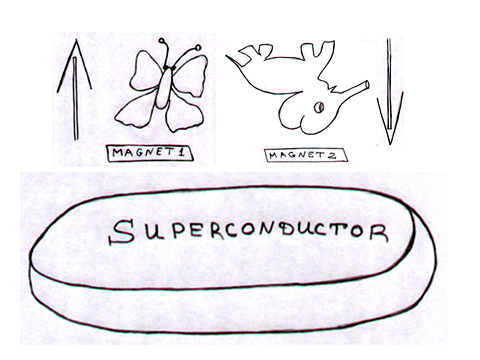 MAGNET 1
MAGNET 2
SUPERCONDUCTOR